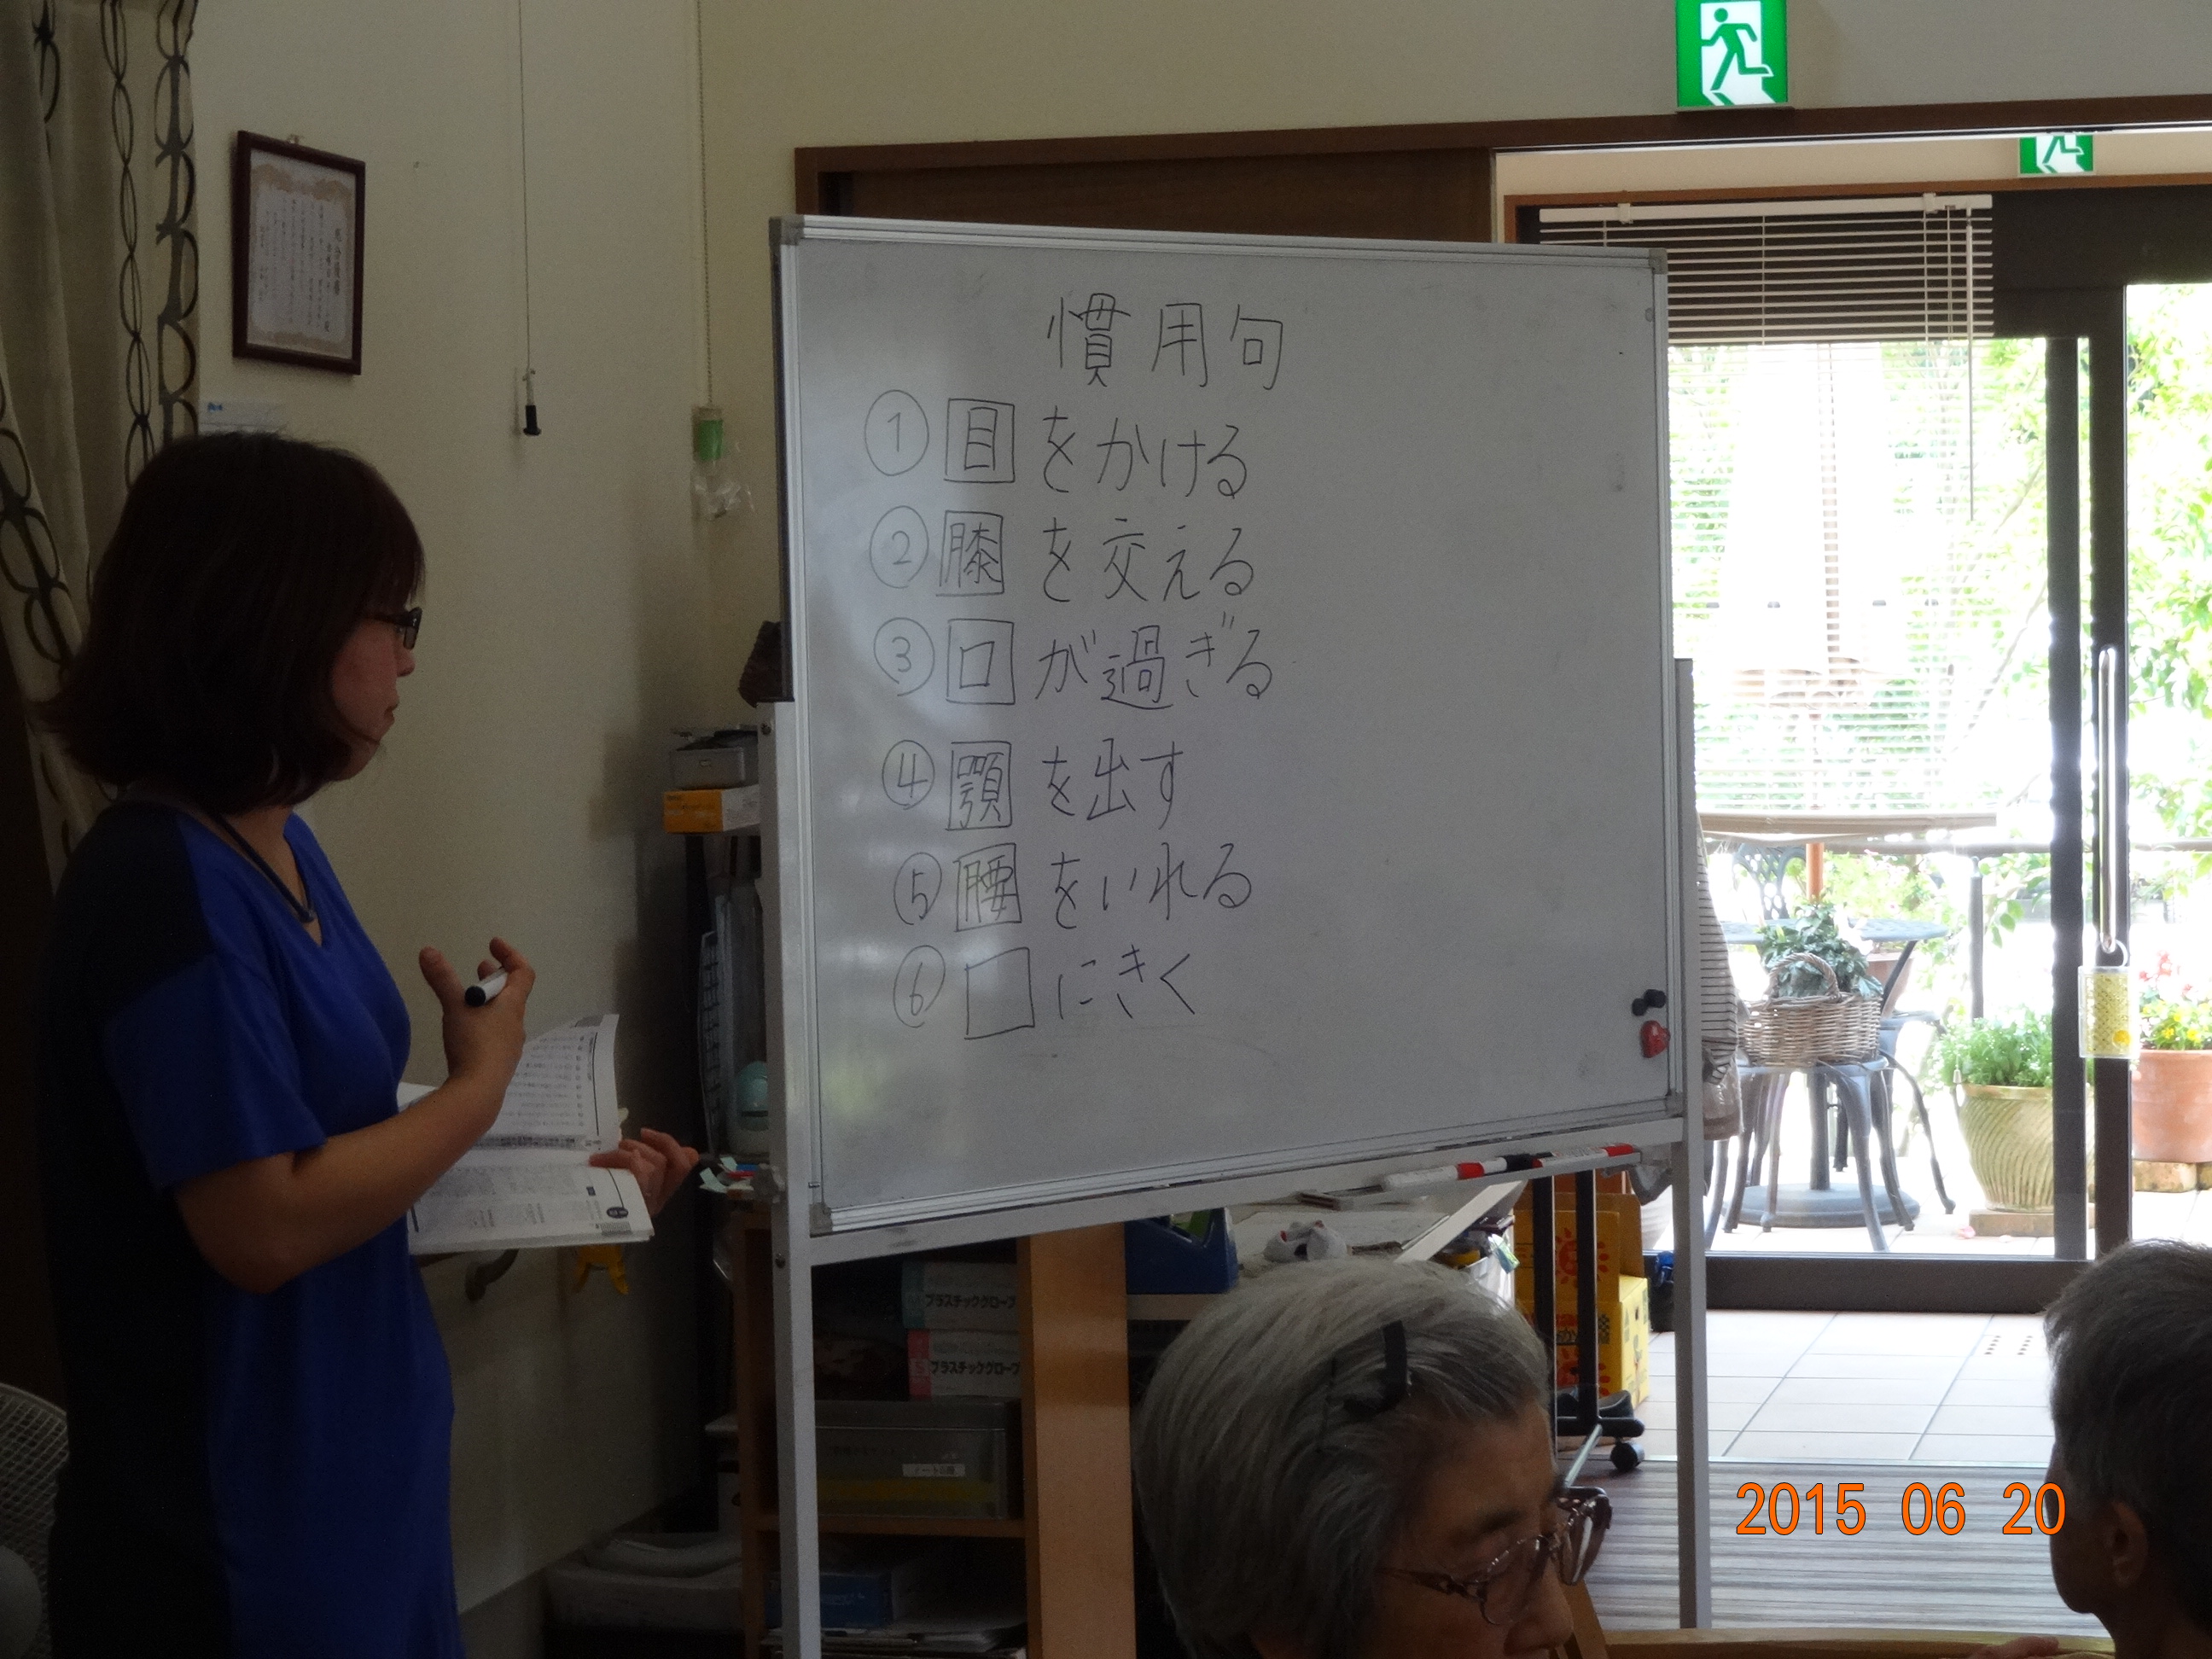 慣用句
① 目 をかける
② 膝 を交える
③ 口 が過ぎる
④ 顎 を出す
⑤ 腰 をいれる
⑥ □ にきく
プラスチックグローブ
プラスチックグローブ
2015 06 20